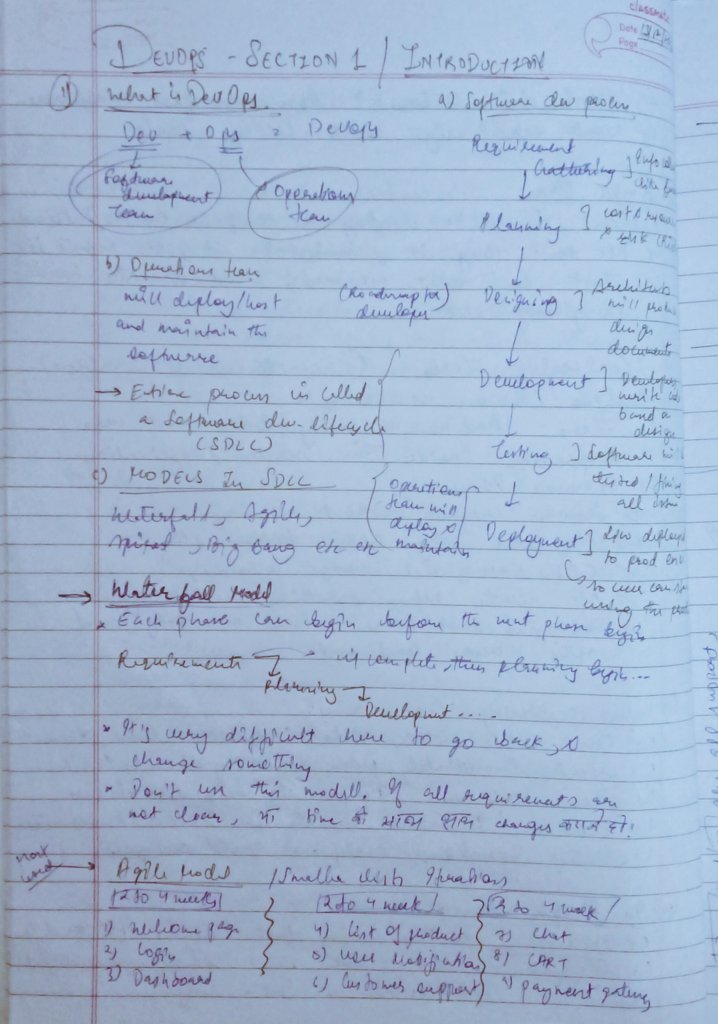 classmate
Date
Page
DEVOPS - SECTION 1 / INTRODUCTION
1) What is DevOps.
Dev + Ops = DevOps
Software
development
team
Operations
team
a) Software dev process
Requirement
Gathering
Planning ] cost &
Designing ] Architects
will
design
documents
Development ] Developers
write
design
Testing ] Software
tested /
all
Deployment ]
to prod
so user can
using the
b) Operations team
will deploy/host
and maintain the
software
(Roadmap for)
developer
→ Entire process is called
a software dev-lifecycle
(SDLC)
Operations
team will
deploy &
maintain
c) MODELS IN SDLC
Waterfall, Agile,
spiral, Big Bang etc etc
→ Waterfall Model
* Each phase can begin before the next phase begin
Requirements → is complete, then planning begin...
Planning
Development ....
* It's very difficult here to go back, &
change something
* Don't use this modell. If all requirements are
not clear, या time के साथ साथ changes करने हो!
most
used
→ Agile Model / Smaller
2 to 4 weeks
1) Welcome page
2) Login
3) Dashboard
2 to 4 week /
4) List of product
5) User Notification
6) Customer support
2 to 4 week /
7) Chat
8) CART
9) payment gateway